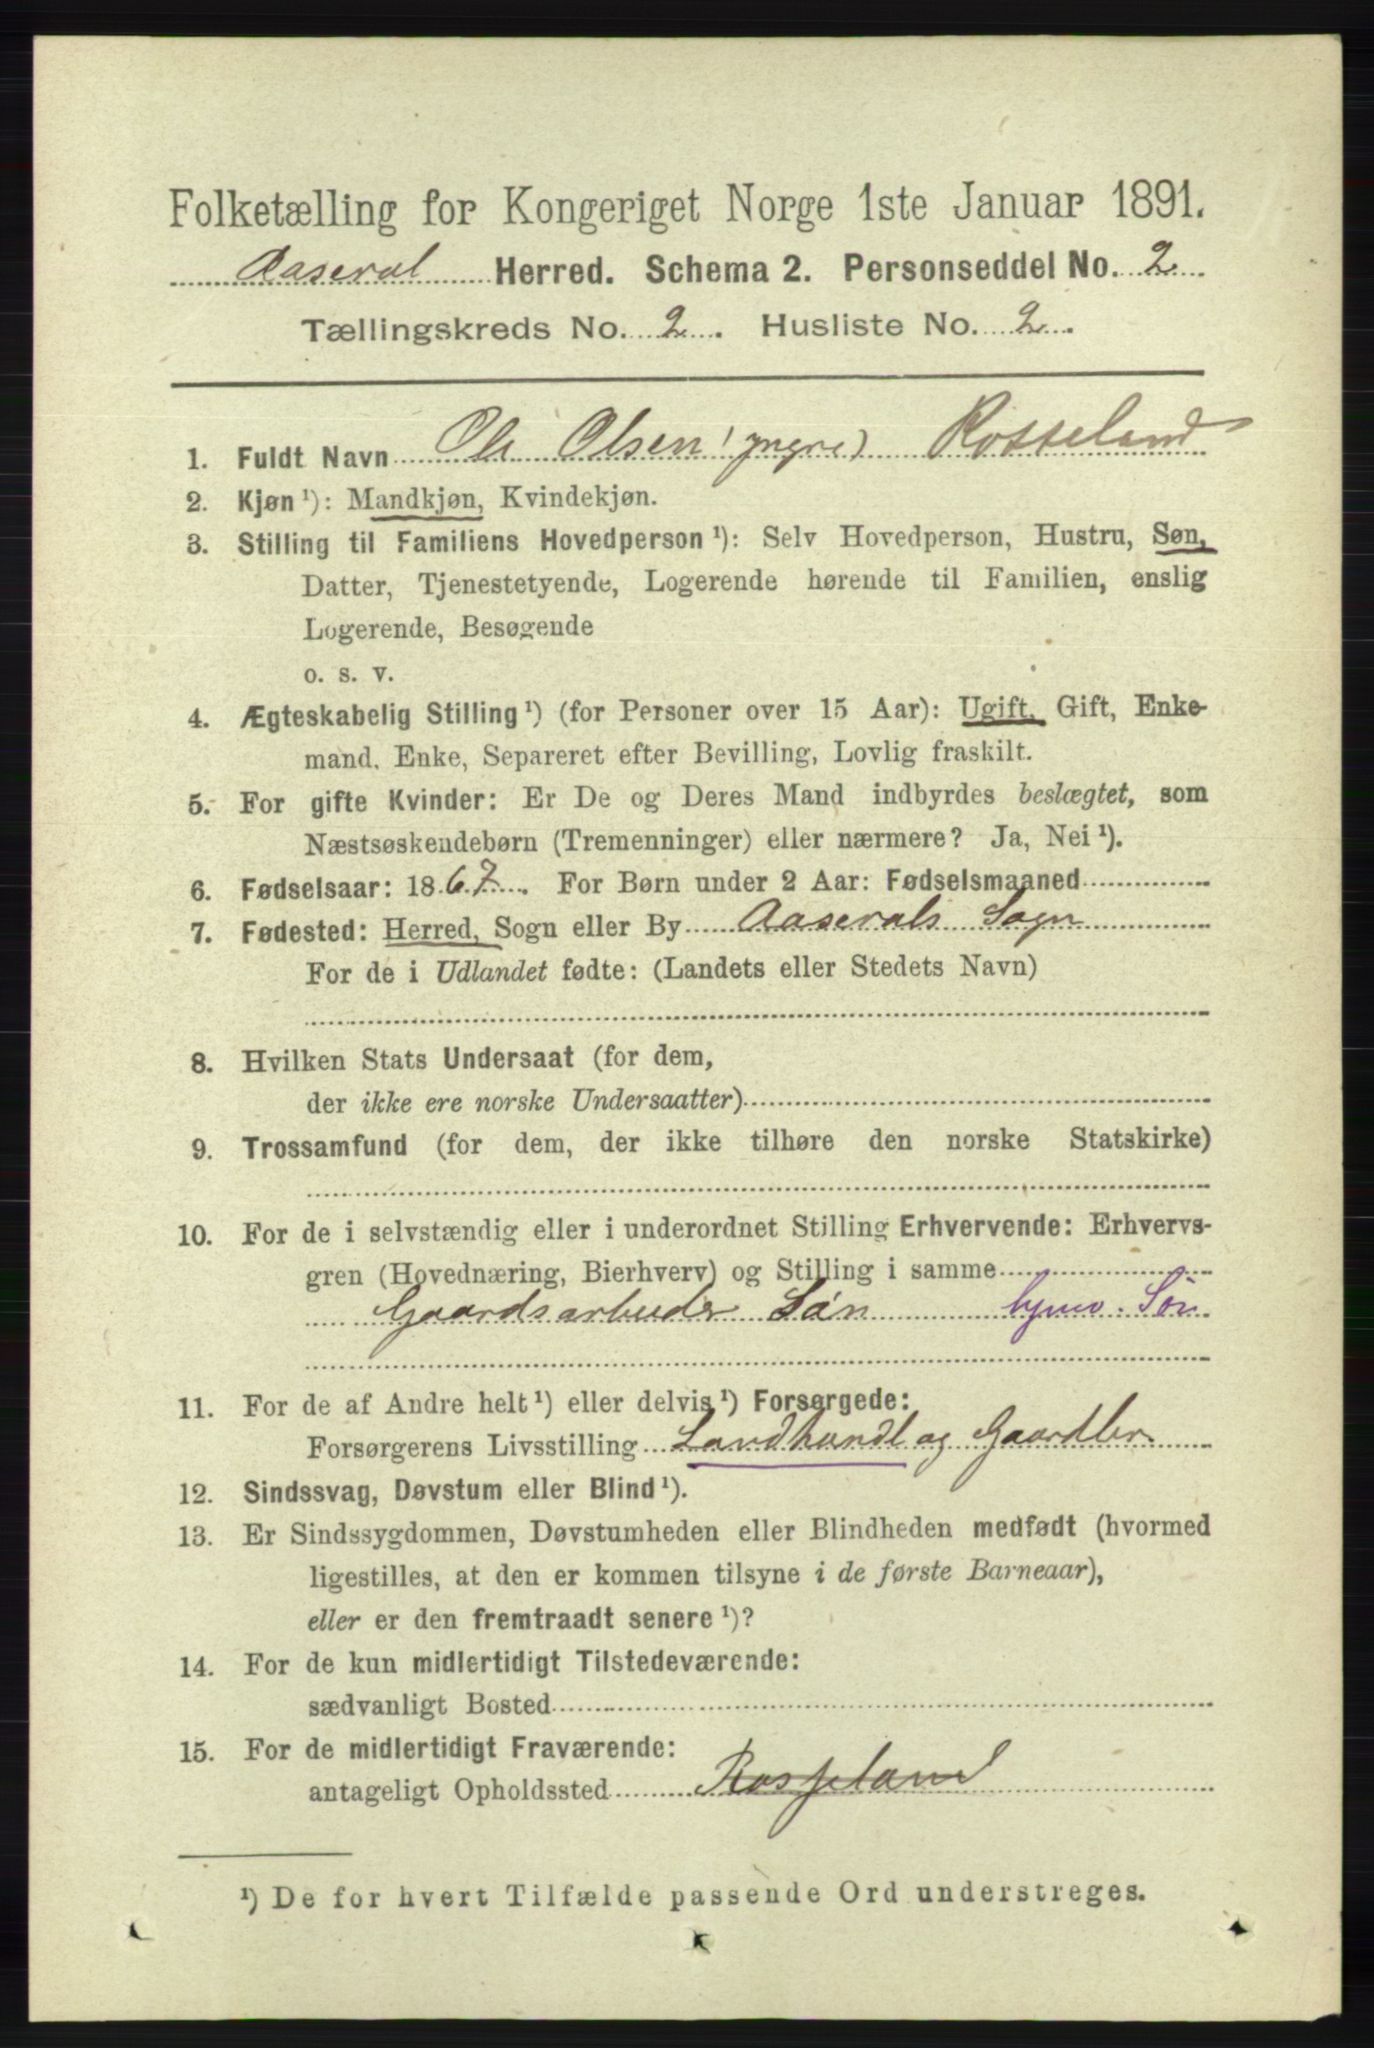 Folketælling for Kongeriget Norge 1ste Januar 1891.
Aaseral Herred. Schema 2. Personseddel No. 2
Tællingskreds No. 2. Husliste No. 2.
1. Fuldt Navn Ole Olsen (yngre) Rosseland
2. Kjøn ¹): Mandkjøn, Kvindekjøn.
3. Stilling til Familiens Hovedperson ¹): Selv Hovedperson, Hustru, Søn,
Datter, Tjenestetyende, Logerende hørende til Familien, enslig
Logerende, Besøgende
o. s. v.
4. Ægteskabelig Stilling ¹) (for Personer over 15 Aar): Ugift, Gift, Enke-
mand, Enke, Separeret efter Bevilling, Lovlig fraskilt.
5. For gifte Kvinder: Er De og Deres Mand indbyrdes beslægtet, som
Næstsøskendebørn (Tremenninger) eller nærmere? Ja, Nei ¹).
6. Fødselsaar: 1867. For Børn under 2 Aar: Fødselsmaaned
7. Fødested: Herred, Sogn eller By Aaserals Sogn
For de i Udlandet fødte: (Landets eller Stedets Navn)
8. Hvilken Stats Undersaat (for dem,
der ikke ere norske Undersaatter)
9. Trossamfund (for dem, der ikke tilhøre den norske Statskirke)
10. For de i selvstændig eller i underordnet Stilling Erhvervende: Erhvervs-
gren (Hovednæring, Bierhverv) og Stilling i samme
Gaardsarbeider Søn hjmv. Søn
11. For de af Andre helt ¹) eller delvis ¹) Forsørgede:
Forsørgerens Livsstilling Landhandl og Gaardbr
12. Sindssvag, Døvstum eller Blind ¹).
13. Er Sindssygdommen, Døvstumheden eller Blindheden medfødt (hvormed
ligestilles, at den er kommen tilsyne i de første Barneaar),
eller er den fremtraadt senere ¹)?
14. For de kun midlertidigt Tilstedeværende:
sædvanligt Bosted
15. For de midlertidigt Fraværende:
antageligt Opholdssted Rosseland
¹) De for hvert Tilfælde passende Ord understreges.